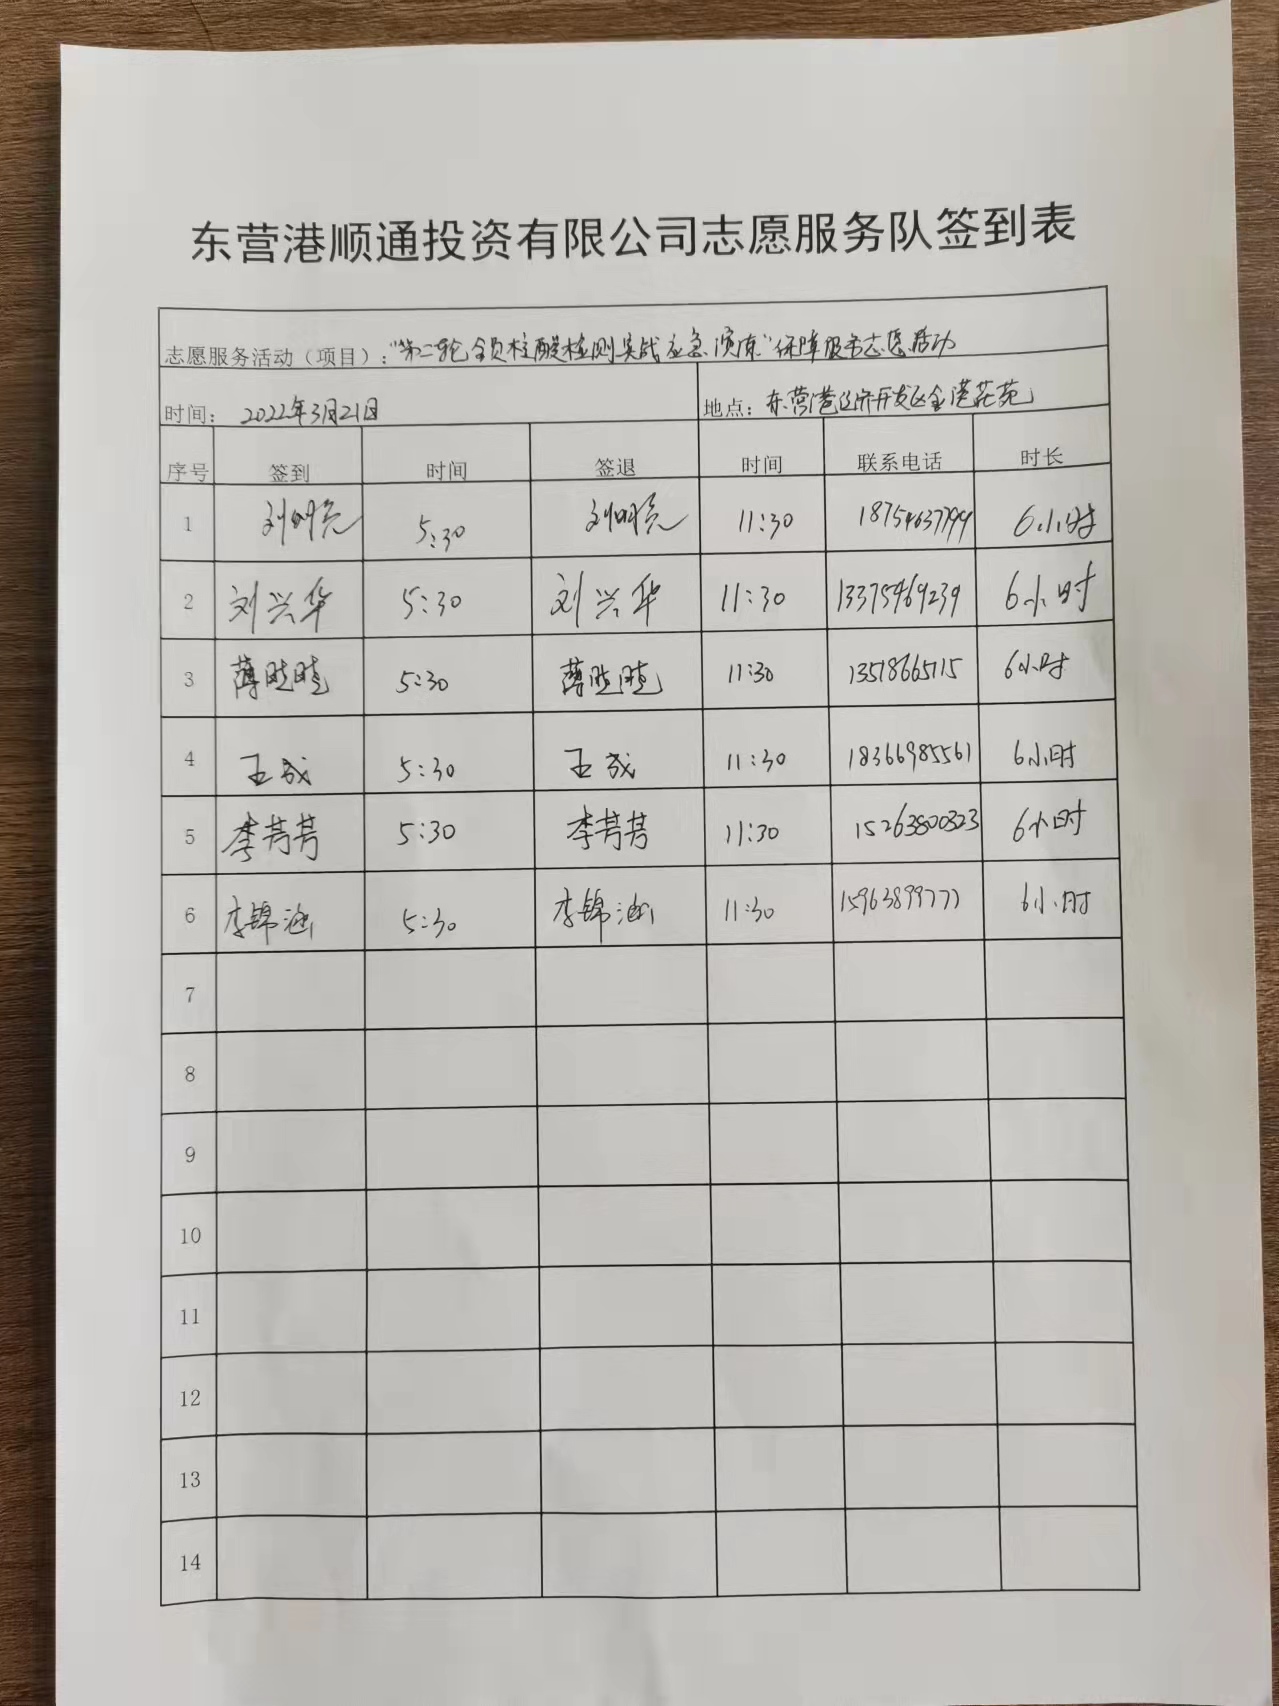 东营港顺通投资有限公司志愿服务队签到表
志愿服务活动（项目）：“第二轮全员核酸检测实战应急演练”保障服务志愿活动
时间： 2022年3月21日 地点：东营港经济开发区金港花苑
序号 签到 时间 签退 时间 联系电话 时长
1 刘明亮 5:30 刘明亮 11:30 6小时
2 刘兴华 5:30 刘兴华 11:30 13375469239 6小时
3 薄晓晓 5:30 薄晓晓 11:30 13518665115 6小时
4 王成 5:30 王成 11:30 18366985561 6小时
5 李芳芳 5:30 李芳芳 11:30 15263800323 6小时
6 李锦涵 5:30 李锦涵 11:30 15963899777 6小时
7
8
9
10
11
12
13
14